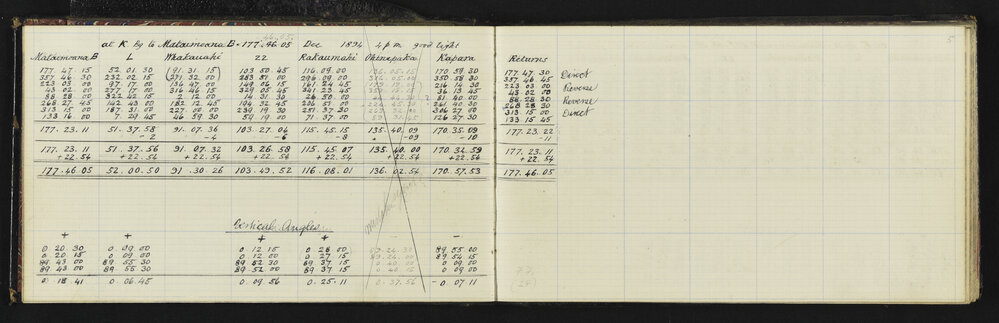 at K Bg to Mataimoana B = 177.46.05 Dec 1894 4 pm good light
Mataimoana B L Whakauaki 22 Rakaumaki Kapara Returns
177 47 15 52 01 30 (91 31 15) 103 50 45 116 09 00 170 59 30 177 47 30 Direct
357 46 30 232 02 15 (271 32 00) 283 51 00 296 09 00 350 58 30 357 46 45
223 03 00 97 17 00 136 47 00 149 06 15 216 14 30 223 03 00 Reverse
43 02 00 277 17 00 316 46 15 329 05 45 341 23 45 36 13 45 43 02 00
88 28 00 322 42 15 2 12 00 14 31 30 26 50 00 81 40 00 88 28 30 Reverse
268 27 45 142 43 00 182 12 45 194 32 45 261 40 30 268 28 30
313 15 00 187 31 00 227 00 00 239 19 30 251 37 30 306 27 00 313 15 00 Direct
133 16 00 7 29 45 46 59 30 59 19 00 71 37 00 126 27 30 133 15 45
177. 23. 11 51. 37. 58 91. 07. 36 103. 27. 04 115. 45. 15 135. 40. 09 170. 35. 09 177. 23. 22
-2 -4 -6 -8 -09 -10 -11
177. 23. 11 51. 37. 56 91. 07. 32 103. 26. 58 115. 45. 07 135. 40. 00 170. 34. 59 177. 23. 11
+22.54 +22.54 +22.54 +22.54 +22.54 +22.54 +22.54 +22.54
177. 46. 05 52. 00. 50 91. 30. 26 103. 49. 52 116. 08. 01 136. 02. 54 170. 57. 53 177. 46. 05
Vertical Angles
+ + + + - -
0 20 30 0 09 00 0 12 15 0 28 00 89 55 00
0 20 15 0 09 00 0 12 00 0 27 15 89 54 15
89 43 00 89 55 30 89 52 30 89 37 15 0 09 00
89 43 00 89 55 30 89 52 00 89 37 15 0 09 00
0 18 41 0 06 45 0 09 56 0 25 11 0 37 56 - 0 07 11